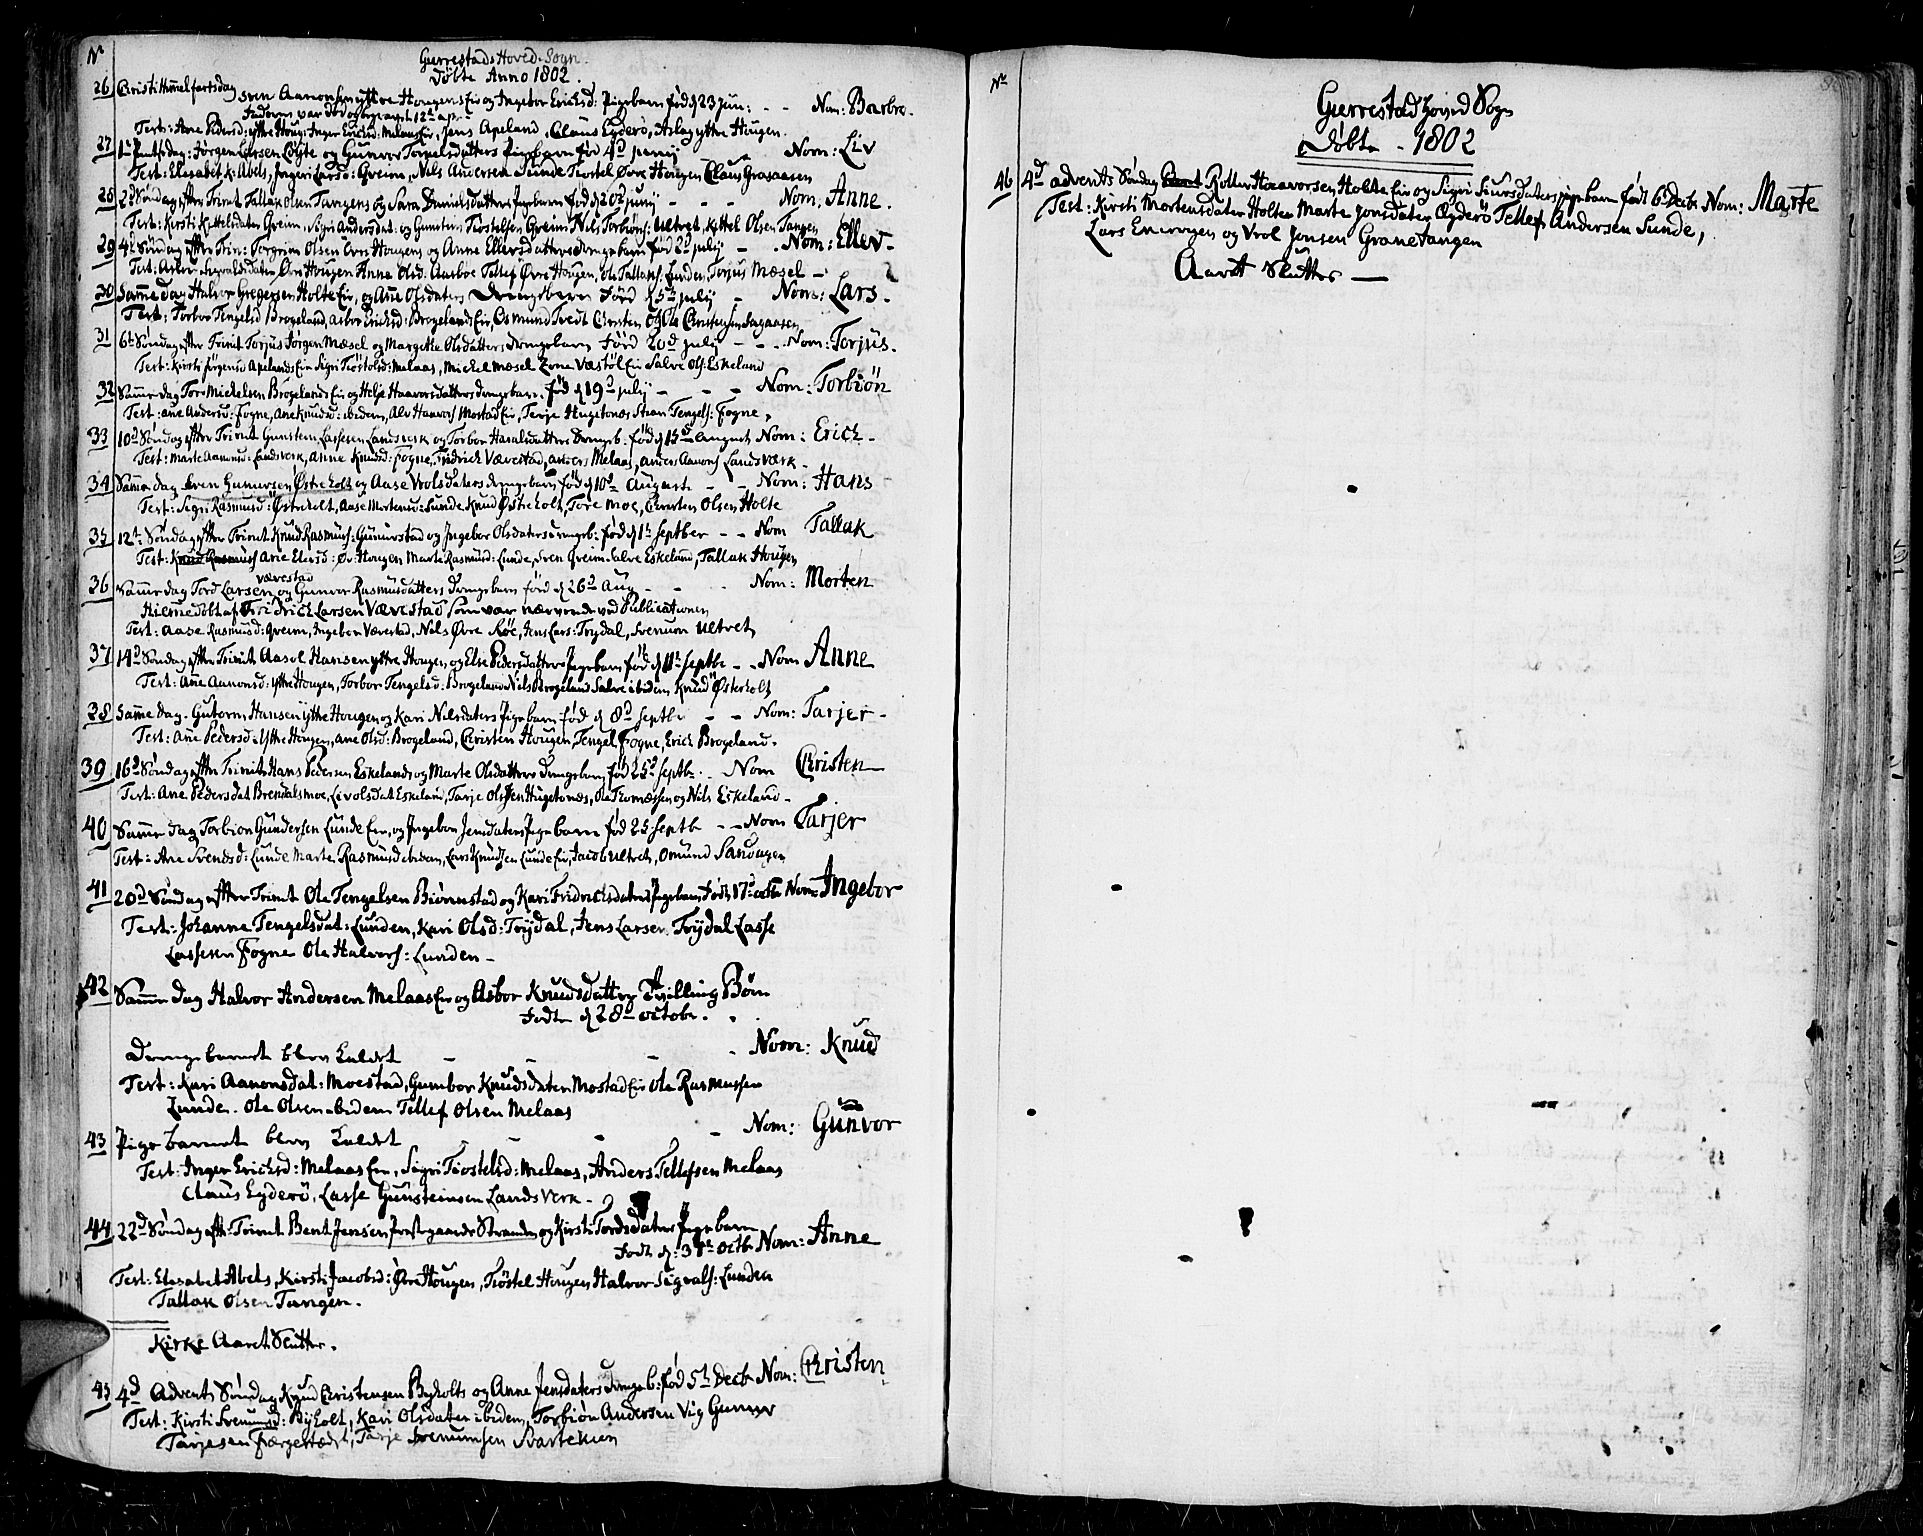 No
Gierrestads Hoved-Sogn
Døbte Anno 1802.
26 Christi Himmelfartsdag Sven Aanonsen yttre Hougens Eie og Ingebor Erichsd: Pigebarn fød d 23 jun: - - Nom: Barbro.
Faderen var død og begravet 12te apr.
Test: Ane Pedersd: yttre Houg: Inger Erichsd: Melaas Eie, Jens Apeland, Claus Eyderø, Aslag yttre Hougen.
27 1te Pintsdag: Jørgen Larsen Løyte og Gunvor Torjuelsdatters Pigebarn fød 4d junij Nom: Liv
Test: Elisabet K: Abels, Ingeri Larsd: Qreim, Nils Andersen Sunde Tiostel Øvre Hougen Claus Graaaasen
28 2d Søndag efter Trinit Tallak Olsen Tangens og Sara Danielsdatters Pigebarn fød d 20d junij - - - Nom: Anne.
Test: Kirsti Kittelsdater Qreim, Sigri Andersdat: og Gunstein Tiostelsen Qreim Nils Torbiøns: Ultvet, Kittel Olsen Tangen
29 4de Søndag efter Trin: Torgrim Olsen Øvre Hougens og Anne Ellevsdatters drengebarn fød 2d julij - . Nom: Ellev -
Test: Asbor Sigvalsdater Øvre Hougen Anne Olsd: Aasboe Tellef Øvre Hougen, Ole Tallaks: Lunden, Torjus Mæsel -
30 Samme dag Halvor Gregersen Holte Eie, og Anne Olsdaters Drengebarn Fød d 5te julij - Nom: Lars.
Test: Torbor Tengelsd Brogeland, Asbor Erichsd: Brogelands Eie, Osmund Tvedt Christen og Ole Christensen Aagaasen
31 6te Søndag efter Trinit Torjus Jørgen Mæsel og Margethe Olsdatters drengebarn Fød 20d julij - - - Nom: Torjus.
Test: Kirsti Jørgensd Apelands Eie Sigri Tiostolsd: Melaas, Michel Mæsel Zone Væstøl Eie Salve Ols: Eskeland
32 Samme dag Tor Michelsen Brogelands Eie og Helje Haavorsdatters drengebarn fød d 19d julij - - - Nom: Torbiøn
Test: Ane Andersd: Fogne, Ane Knudsd: ibidem, Alv Haavors Mostad Eie, Terje Hugetonæs Stian Tengels: Fogne,
33 10d Søndag efter Trinit Gunstein Lassesen Landsverk og Torbor Haralsdatters Drengb: fød d 15d August Nom: Erich -
Test: Marte Aanonsd: Landsverk, Anne Knudsd: Fogne, Fridrich Værestad, Anders Melaas, Anders Aanons Landsværk -
34 Samme dag Sven Gunnersen Østreholt og Aase Vrolsdaters drengebarn fød d 10d August - - Nom: Hans
Test: Sigri Rasmusd: Østreholt, Aase Mortensd: Sunde Knud Østreholt, Tore Moe, Christen Olsen Holte
35 12te Søndag efter Trinit Knud Rasmus: Gunnerstad og Ingebor Olsdaters drengeb: fød d 1te Septber - - Nom Tallak
Test: Knud Rasmus Ane Elivsd: Ør: Hougen Marte Rasmusd: Lunde, Sven Qreim Salve Eskeland, Tallak Hougen
36 Samme dag Tord Larsen Værestad og Gunvor Rasmusdatters Drengebarn fød d 26d Aug - - - Nom: Morten
Hiemmedøbt af Fridrich Larsen Værestad som var nærværende ved Publicationen
Test: Aase Rasmusd: Qreim, Ingebor Værestad, Nils Øvre Røe, Jens Lars: Trydal, Svenum Ultvet,
37 14d Søndag efter Trinit Aasol Hansen yttre Hougen, og Else Pedersdatters Pigebarn fød d 11te Septbr - - Nom Anne
Test: Ane Aanonsd: yttre Hougen, Torbor Tengelsd: Brogeland Nils Brogeland Salve ibidem Knud Østerholt
38 Samme dag. Gutorm Hansen ytte Hougen og Kari Nilsdaters Pigebarn fød d 8d Septbr - - Nom: Tarjer -
Test: Ane Pedersd: Ytte Hougen, Ane Olsd: Brogeland, Christen Hougen, Tengel Fogne, Erich Brogeland.
39 16d Søndag efter Trinit Hans Pedersen Eskelands og Marte Olsdatters Drengebarn fød 25d Septbr. - Nom Christen
Test: Ane Pedersdat Brendalsmoe, Liv Olsdat Eskeland, Tarje Olssen Hugetonæs, Ole Thomæssen og Nils Eskeland -
40 Samme dag Torbion Gundersen Lunde Eie, og Ingebor Jensdaters Pigebarn fød 25 Septb - - Nom Tarjer
Test: Ane Svendsd: Lunde Marte Rasmusd ibidem, Lars Knudsen Lunde Eie, Jacob Ultvet, Omund Sandaagen
41 20d Søndag efter Trinit Ole Tengelsen Biørnstad og Kari Fridrichsdaters Pigebarn Født 17d octbr Nom: Ingebor
Test: Johanne Tengelsdat: Lunden, Kari Olsd: Trydal, Jens Larsen Trÿdal Lasse
Lassesen Fogne Ole Halvors: Lunden -
42 Samme dag Halvor Andersen Melaas Eie og Asbor Knudsdatter Tvilling Børn
Fødte d 28d octobr.
Drengebarnet blev kaldet - - - - Nom: Knud
Test: Kari Aanonsdat: Moestad, Gumbor Knudsdater Mostad Eie Ole Rasmussen
Lunde. Ole Olsen ibidem Tellef Olsen Melaas
43 Pige barnet blev kaldet - - - - Nom: Gunvor
Test: Inger Erichsd: Melaas Eie, Sigri Tiostelsd: Melaas, Anders Tellefsen Melaas
Claus Eyderö, Lasse Gunsteinsen Landsverk -
44 22d Søndag eft: Trinit Bent Jensen Præstegaards Stranden og Kirsti Tordsdaters Pigebarn
Født d: 31te octb Nom: Anne
Test: Elisabet Abels, Kirsti Jacobsd: Øvre Hougen, Tiöstel Hougen Halvor Sigvals: Lunden
Tallak Olsen Tangen.
Kirke Aaret Slutter.
45 4d Advents Søndag Knud Christensen Byholts og Anne Jensdaters drengeb: fød 5te Decb Nom: Christen
Test: Kirsti Svenumsd: Byholt, Kari Olsdater ibidem, Torbiøn Andersen Vig Gunner
Tarjesen Færgestædt, Tarje Svenumsen Svartemien
No
Gierrestad Hoved Sogn
Døbte - 1802
46 4d advents Søndag Rollev Haavorsen Holte Eie og Sigri Siursdaters pigebarn født 6 Decb Nom: Marte
Test: Kirsti Mortensdater Holte Marte Jonsdater Eyderö Tellef Andersen Sunde,
Lars Enervogen og Vrol Jonsen Granetangen
Aaret Slutter -